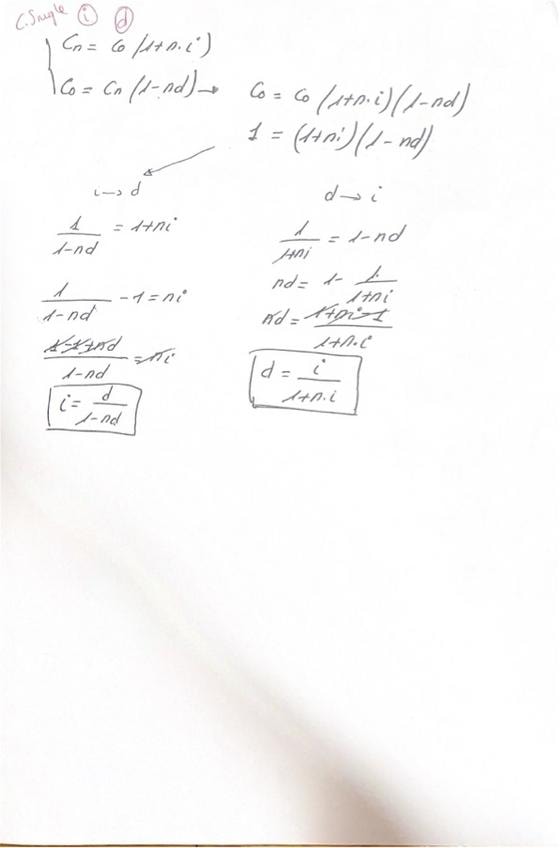 C. Simple i d
Cn = Co (1+n.i)
Co = Cn (1-nd) → Co = Co (1+n.i)(1-nd)
1 = (1+ni)(1-nd)
i → d
1/(1-nd) = 1+ni
1/(1-nd) -1 = ni
(1-1+nd)/(1-nd) = ni
i = d/(1-nd)
d → i
1/(1+ni) = 1-nd
nd = 1- 1/(1+ni)
nd = (1+ni-1)/(1+n.i)
d = i/(1+n.i)